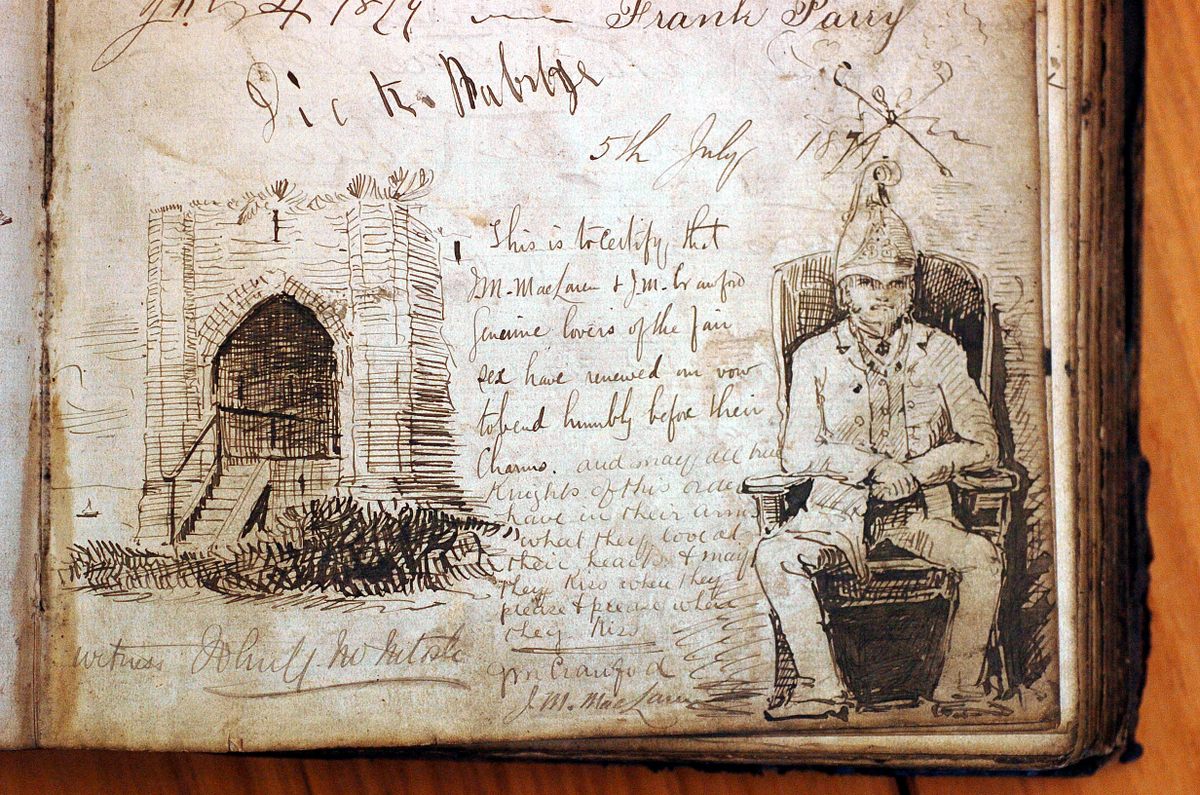 July 4 1879 Frank Parry
Dick
5th July 187
This is to certify that
J.M. MacLaren & J.M. Crawford
Genuine lovers of the fair
sex have renewed our vow
to bend humbly before their
Charms. and may all true
Knights of this order
have in their arms
what they love at
their hearts & may
they kiss when they
please & please when
they kiss
JM Crawford
J.M. MacLaren
witness John McIntosh